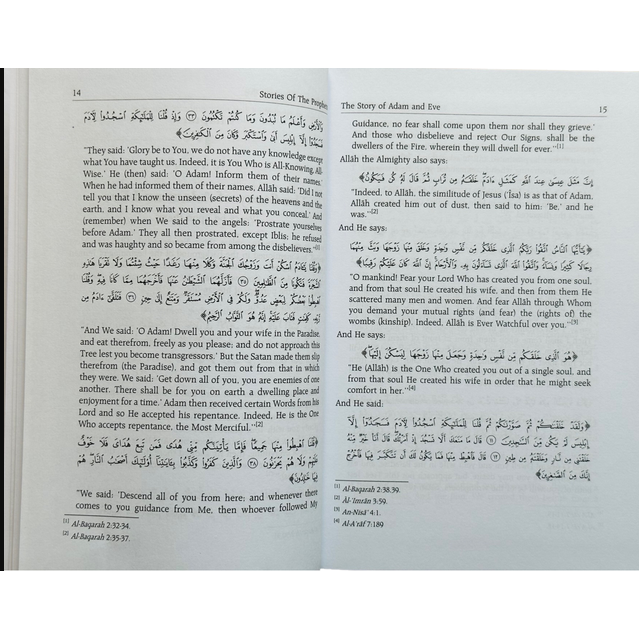 14
Stories Of The Prophets
وَٱلْأَرْضِ وَأَعْلَمُ مَا تُبْدُونَ وَمَا كُنتُمْ تَكْتُمُونَ ﴿٣٣﴾ وَإِذْ قُلْنَا لِلْمَلَٰٓئِكَةِ ٱسْجُدُوا۟ لِءَادَمَ
فَسَجَدُوٓا۟ إِلَّآ إِبْلِيسَ أَبَىٰ وَٱسْتَكْبَرَ وَكَانَ مِنَ ٱلْكَٰفِرِينَ﴾
"They said: 'Glory be to You, we do not have any knowledge except
what You have taught us. Indeed, it is You Who is All-Knowing, All-
Wise.' He (then) said: 'O Adam! Inform them of their names.'
When he had informed them of their names, Allāh said: 'Did I not
tell you that I know the unseen (secrets) of the heavens and the
earth, and I know what you reveal and what you conceal.' And
(remember) when We said to the angels: 'Prostrate yourselves
before Adam.' They all then prostrated, except Iblis; he refused
and was haughty and so became from among the disbelievers."[1]
﴿وَقُلْنَا يَٰٓـَٔادَمُ ٱسْكُنْ أَنتَ وَزَوْجُكَ ٱلْجَنَّةَ وَكُلَا مِنْهَا رَغَدًا حَيْثُ شِئْتُمَا وَلَا تَقْرَبَا هَٰذِهِ
ٱلشَّجَرَةَ فَتَكُونَا مِنَ ٱلظَّٰلِمِينَ ﴿٣٥﴾ فَأَزَلَّهُمَا ٱلشَّيْطَٰنُ عَنْهَا فَأَخْرَجَهُمَا مِمَّا كَانَا فِيهِ وَقُلْنَا
ٱهْبِطُوا۟ بَعْضُكُمْ لِبَعْضٍ عَدُوٌّ وَلَكُمْ فِى ٱلْأَرْضِ مُسْتَقَرٌّ وَمَتَٰعٌ إِلَىٰ حِينٍ ﴿٣٦﴾ فَتَلَقَّىٰٓ ءَادَمُ مِن
رَّبِّهِۦ كَلِمَٰتٍ فَتَابَ عَلَيْهِ إِنَّهُۥ هُوَ ٱلتَّوَّابُ ٱلرَّحِيمُ﴾
"And We said: 'O Adam! Dwell you and your wife in the Paradise,
and eat therefrom, freely as you please; and do not approach this
Tree lest you become transgressors.' But the Satan made them slip
therefrom (the Paradise), and got them out from that in which
they were. We said: 'Get down all of you, you are enemies of one
another. There shall be for you on earth a dwelling place and
enjoyment for a time.' Adam then received certain Words from his
Lord and so He accepted his repentance. Indeed, He is the One
Who accepts repentance, the Most Merciful."[2]
﴿قُلْنَا ٱهْبِطُوا۟ مِنْهَا جَمِيعًا فَإِمَّا يَأْتِيَنَّكُم مِّنِّى هُدًى فَمَن تَبِعَ هُدَاىَ فَلَا خَوْفٌ
عَلَيْهِمْ وَلَا هُمْ يَحْزَنُونَ ﴿٣٨﴾ وَٱلَّذِينَ كَفَرُوا۟ وَكَذَّبُوا۟ بِـَٔايَٰتِنَآ أُو۟لَٰٓئِكَ أَصْحَٰبُ ٱلنَّارِ هُمْ
فِيهَا خَٰلِدُونَ﴾
"We said: 'Descend all of you from here; and whenever there
comes to you guidance from Me, then whoever followed My
[1] Al-Baqarah 2:32-34.
[2] Al-Baqarah 2:35-37.
The Story of Adam and Eve
15
Guidance, no fear shall come upon them nor shall they grieve.'
And those who disbelieve and reject Our Signs, shall be the
dwellers of the Fire, wherein they will dwell for ever."[1]
Allāh the Almighty also says:
﴿إِنَّ مَثَلَ عِيسَىٰ عِندَ ٱللَّهِ كَمَثَلِ ءَادَمَ خَلَقَهُۥ مِن تُرَابٍ ثُمَّ قَالَ لَهُۥ كُن فَيَكُونُ﴾
"Indeed, to Allāh, the similitude of Jesus ('Īsa) is as that of Adam.
Allāh created him out of dust, then said to him: 'Be,' and he
was."[2]
And He says:
﴿يَٰٓأَيُّهَا ٱلنَّاسُ ٱتَّقُوا۟ رَبَّكُمُ ٱلَّذِى خَلَقَكُم مِّن نَّفْسٍ وَٰحِدَةٍ وَخَلَقَ مِنْهَا زَوْجَهَا وَبَثَّ مِنْهُمَا
رِجَالًا كَثِيرًا وَنِسَآءً وَٱتَّقُوا۟ ٱللَّهَ ٱلَّذِى تَسَآءَلُونَ بِهِۦ وَٱلْأَرْحَامَ إِنَّ ٱللَّهَ كَانَ عَلَيْكُمْ رَقِيبًا﴾
"O mankind! Fear your Lord Who has created you from one soul,
and from that soul He created his wife, and then from them He
scattered many men and women. And fear Allāh through Whom
you demand your mutual rights (and fear) the (rights of) the
wombs (kinship). Indeed, Allāh is Ever Watchful over you."[3]
And He says:
﴿هُوَ ٱلَّذِى خَلَقَكُم مِّن نَّفْسٍ وَٰحِدَةٍ وَجَعَلَ مِنْهَا زَوْجَهَا لِيَسْكُنَ إِلَيْهَا﴾
"He (Allāh) is the One Who created you out of a single soul, and
from that soul He created his wife in order that he might seek
comfort in her."[4]
And He said:
﴿وَلَقَدْ خَلَقْنَٰكُمْ ثُمَّ صَوَّرْنَٰكُمْ ثُمَّ قُلْنَا لِلْمَلَٰٓئِكَةِ ٱسْجُدُوا۟ لِءَادَمَ فَسَجَدُوٓا۟ إِلَّآ
إِبْلِيسَ لَمْ يَكُن مِّنَ ٱلسَّٰجِدِينَ ﴿١١﴾ قَالَ مَا مَنَعَكَ أَلَّا تَسْجُدَ إِذْ أَمَرْتُكَ قَالَ أَنَا۠ خَيْرٌ مِّنْهُ
خَلَقْتَنِى مِن نَّارٍ وَخَلَقْتَهُۥ مِن طِينٍ ﴿١٢﴾ قَالَ فَٱهْبِطْ مِنْهَا فَمَا يَكُونُ لَكَ أَن تَتَكَبَّرَ فِيهَا فَٱخْرُجْ
إِنَّكَ مِنَ ٱلصَّٰغِرِينَ﴾
[1] Al-Baqarah 2:38,39.
[2] Āl-'Imrān 3:59.
[3] An-Nisā' 4:1.
[4] Al-A'rāf 7:189